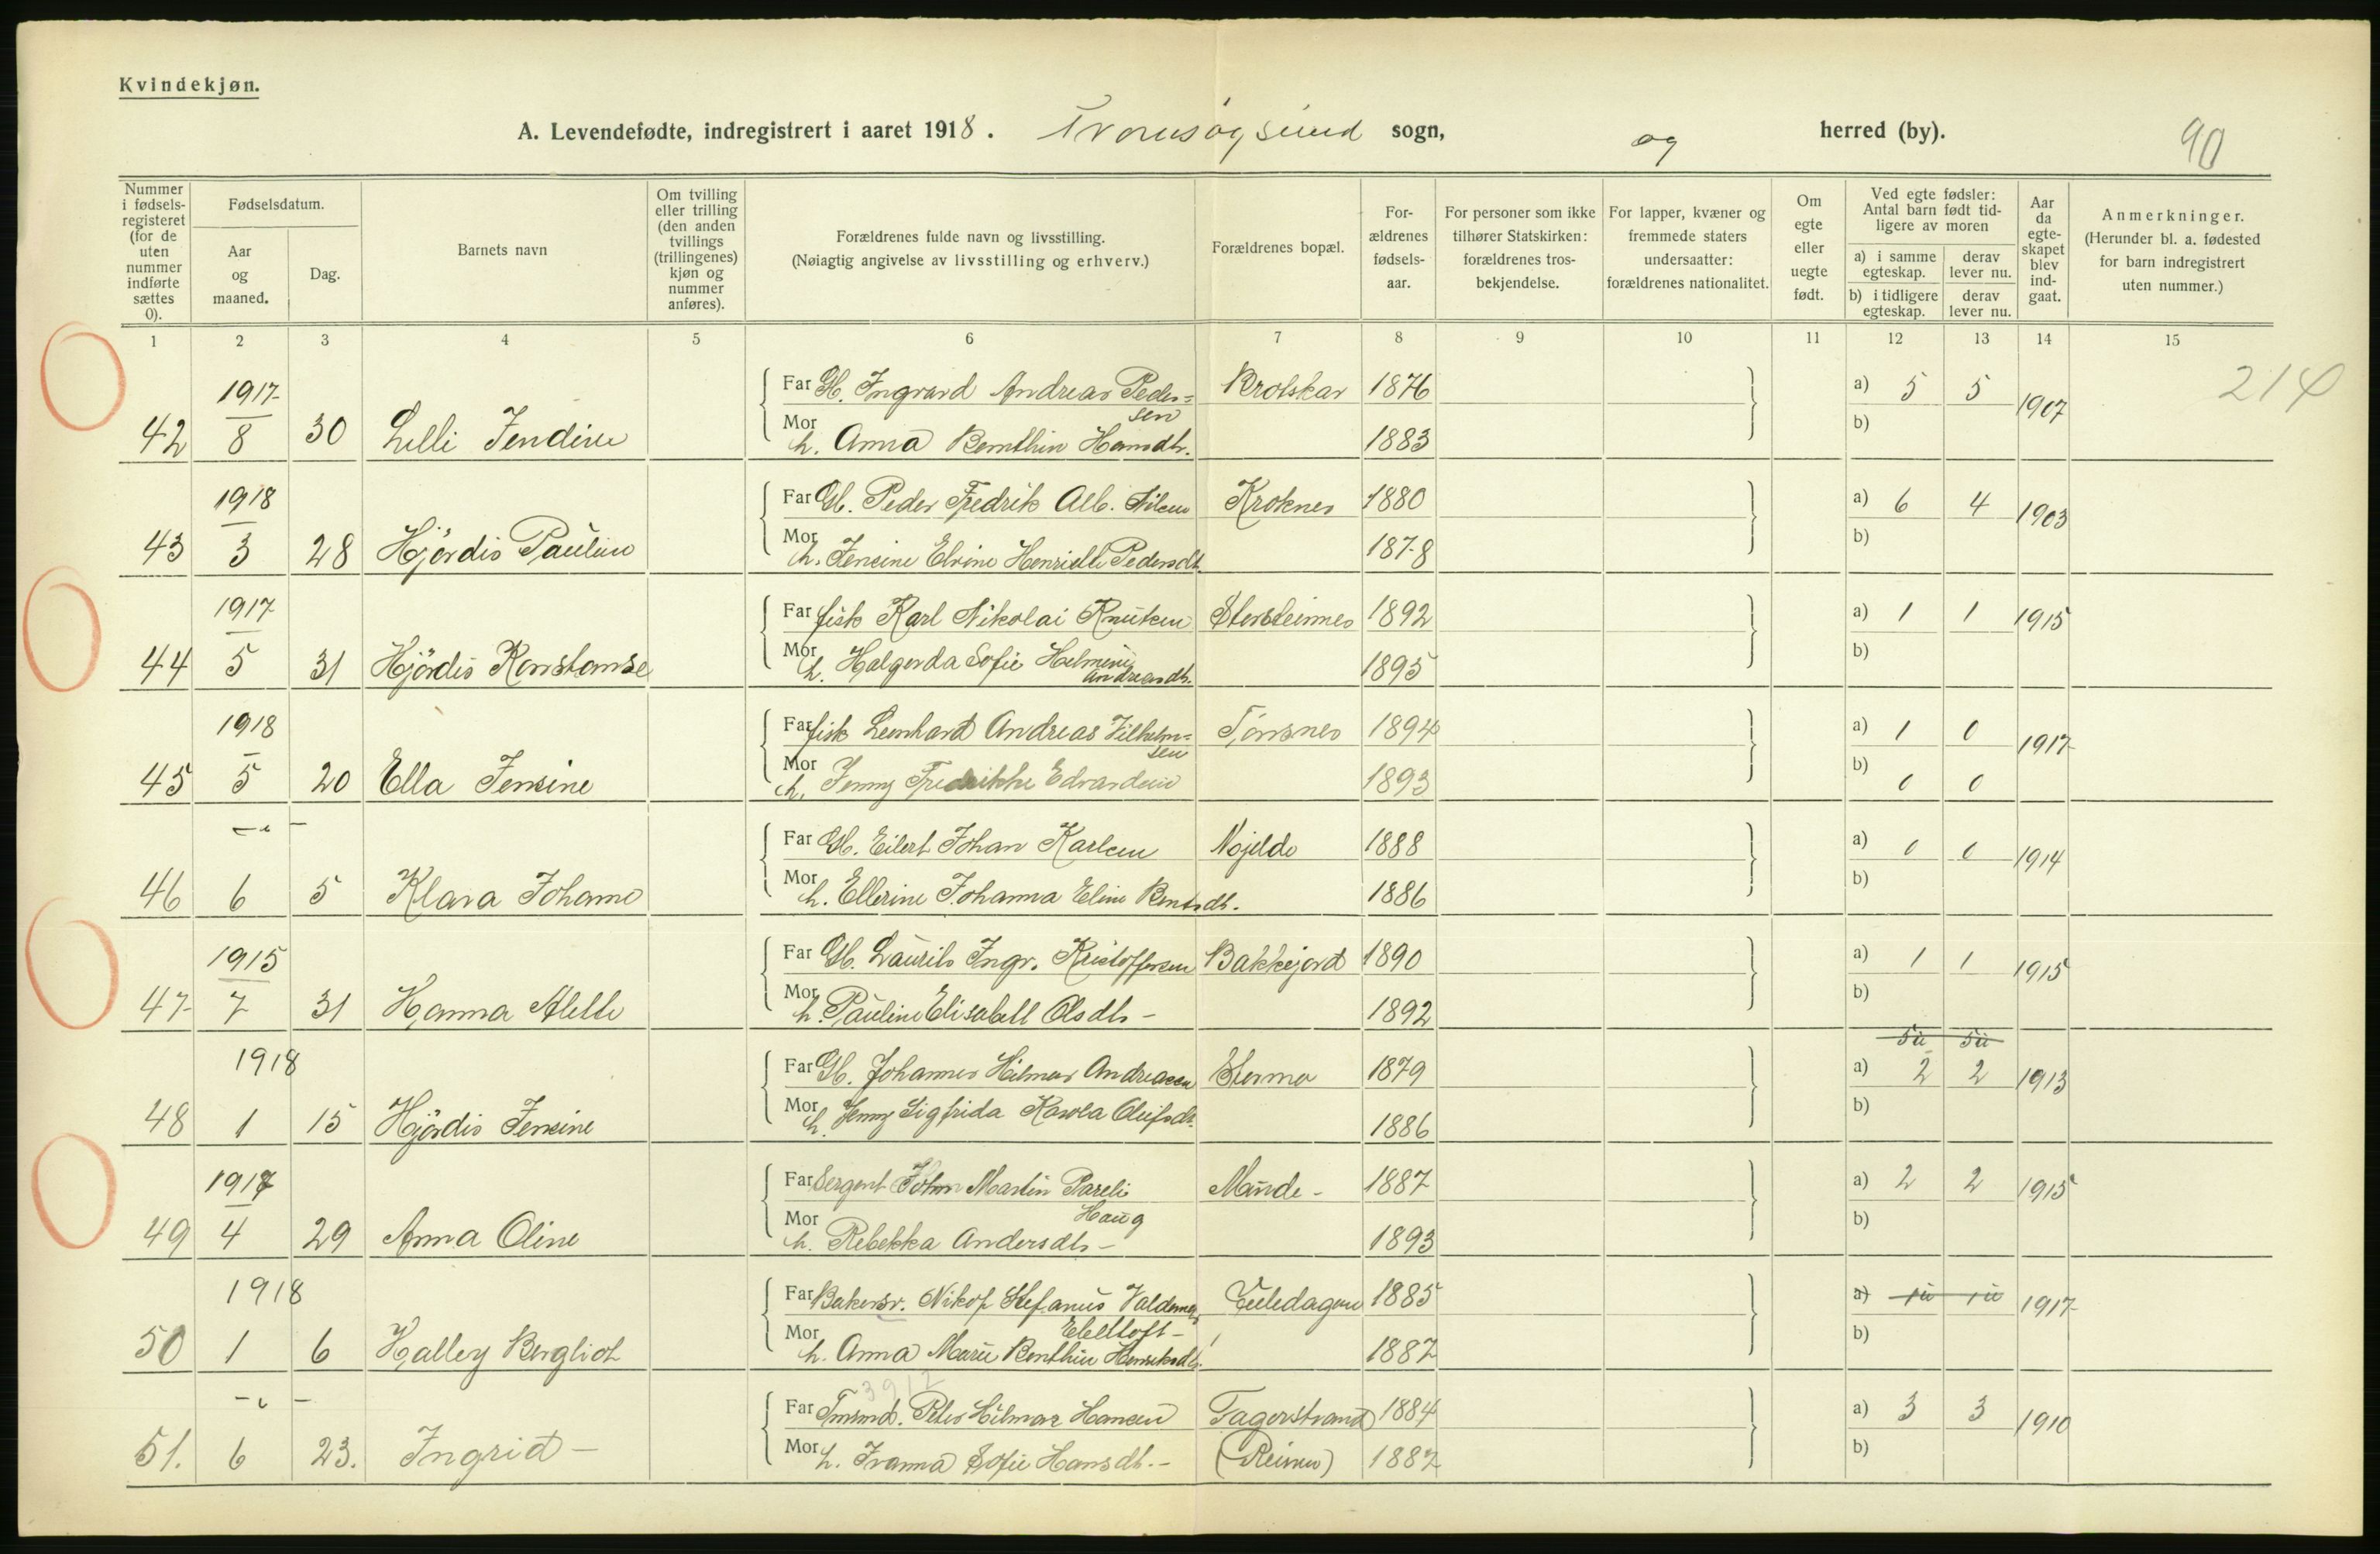 Kvindekjøn.
A. Levendefødte, indregistrert i aaret 1918. Tromsøysund sogn, og herred (by). 90
Nummer i fødsels-registeret (for de uten nummer indførte sættes 0).
Fødselsdatum.
Aar og maaned.
Dag.
Barnets navn
Om tvilling eller trilling (den anden tvillings (trillingenes) kjøn og nummer anføres).
Forældrenes fulde navn og livsstilling.
(Nøiagtig angivelse av livsstilling og erhverv.)
Forældrenes bopæl.
For-ældrenes fødsels-aar.
For personer som ikke tilhører Statskirken: forældrenes tros-bekjendelse.
For lapper, kvæner og fremmede staters undersaatter: forældrenes nationalitet.
Om egte eller uegte født.
Ved egte fødsler: Antal barn født tid-ligere av moren
a) i samme egteskap. derav lever nu.
b) i tidligere egteskap. derav lever nu.
Aar da egte-skapet blev ind-gaat.
Anmerkninger.
(Herunder bl. a. fødested for barn indregistrert uten nummer.)
1 2 3 4 5 6 7 8 9 10 11 12 13 14 15
214
1917 Far Gb. Ingvard Andreas Peder= Brotskar 1876 a) 5 5 1907
sen
42 8 30 Lilli Jendine Mor h. Anna Bernthin Hansdtr. 1883 b)
1918 Far Gb. Peder Fredrik Alb. Nilsen Kroknes 1880 a) 6 4 1903
43 3 28 Hjördis Pauline Mor h. Jensine Elvine Henriette Pedersdt. 1878 b)
1917 Far fisk Karl Nikolai Knutsen Storsteinnes 1892 a) 1 1 1915
44 5 31 Hjördis Konstanse Mor h. Halgerda Sofie Helmine 1895 b)
Andreasdtr.
1918 Far fisk Leonhard Andreas Vilhelm= Tjønsnes 1894 a) 1 0 1917
sen
45 5 20 Ella Jensine Mor h. Jenny Fredrikke Edvardsen 1893 b) 0 0
– " – Far Gb. Eilert Johan Karlsen 1888 a) 0 0 1914
46 6 5 Klara Johanne Mor h. Ellerine Johanna Eline Bentsdt. 1886 b)
1915 Far Gb. Laurits Ingv. Kristoffersen Bakkejord 1890 a) 1 1 1915
47 7 31 Hanna Alette Mor h. Pauline Elisabett Olsdtr – 1892 b)
1918 Far Gb. Johannes Hilmar Andreasen 1879 a) 2 2 1913
48 1 15 Hjördis Jensine Mor h. Jenny Sigfrida Karola Olufsdt. 1886 b)
1917 Far Sergent John Martin Pareli Maude – 1887 a) 2 2 1915
Haug
49 4 29 Anna Oline Mor h. Rebekka Andersdtr – 1893 b)
1918 Far Bakersv. Nikof Stefanus Valdemar 1885 a) 1917
Ebeltoft –
50 1 6 Halley Bergliot Mor h. Anna Marie Benthine Henriksdt. 1887 b)
3912
– " – Far Tmsmd. Peter Hilmar Hansen Fagerstrand 1884 a) 3 3 1910
51. 6 23. Ingrid – Mor h. Ivanna Sofie Hansdt. – (Reinen) 1887 b)